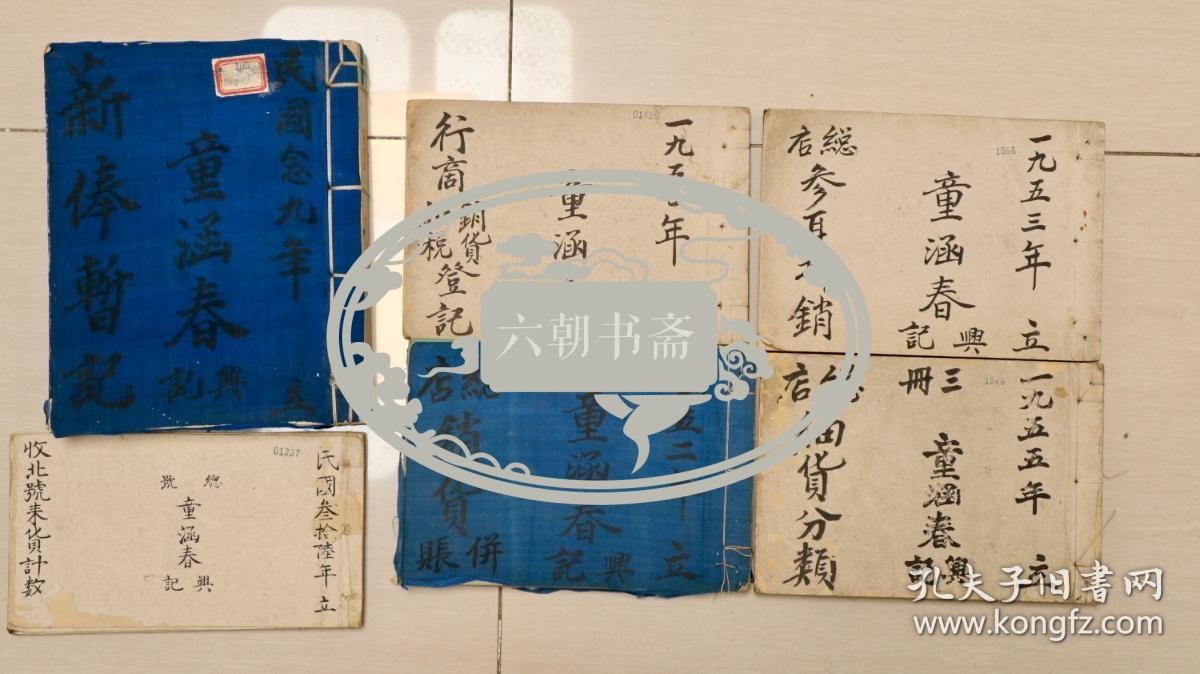 民國念九年 立
童涵春
興記
薪俸暫記
01337
民國叁拾陸年 立
總號
童涵春
興記
收北號来貨計數
一九五 年
童涵
行商 銷貨 税 登記
1566
一九五三年 立
童涵春
興記
総店
参 銷
五二年 立
童涵春
興記
総店
銷貨
併賬
1648
一九五五年 立
三冊
童涵春
興記
店
貨分類
六朝书斋
孔夫子旧书网
www.kongfz.com